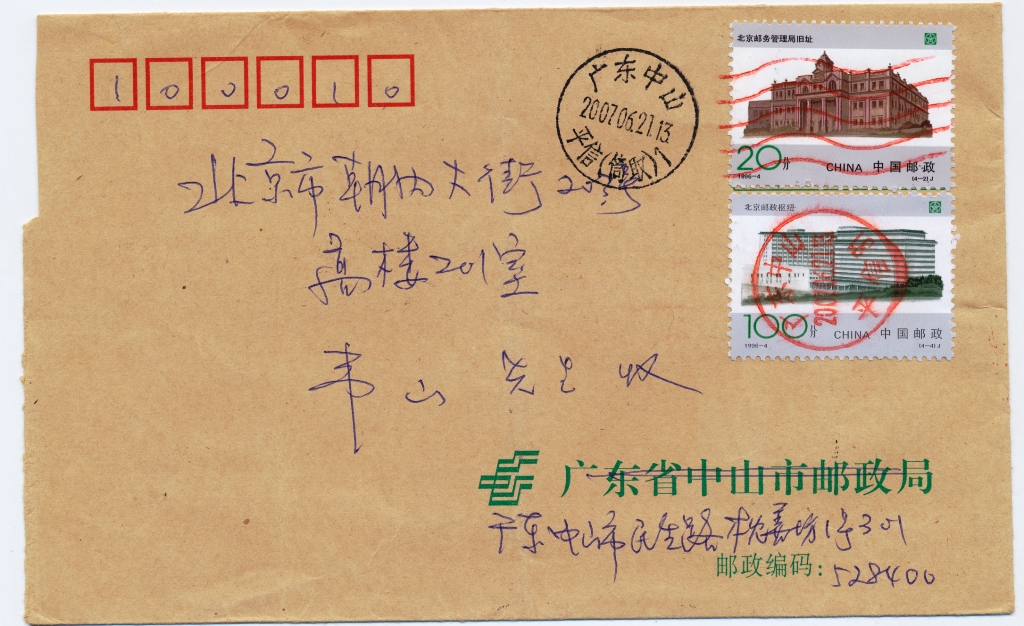 北京邮务管理局旧址
20分 CHINA 中国邮政
1996-4 (4-2)J
北京邮政枢纽
100分 CHINA 中国邮政
1996-4 (4-4)J
广东中山
2007.06.21.13
平信(筒取)1
广东中山
100010
北京市朝内大街203号
高楼201室
韦山 先生 收
广东省中山市邮政局
广东中山市民生路 坊1号301
邮政编码: 528400